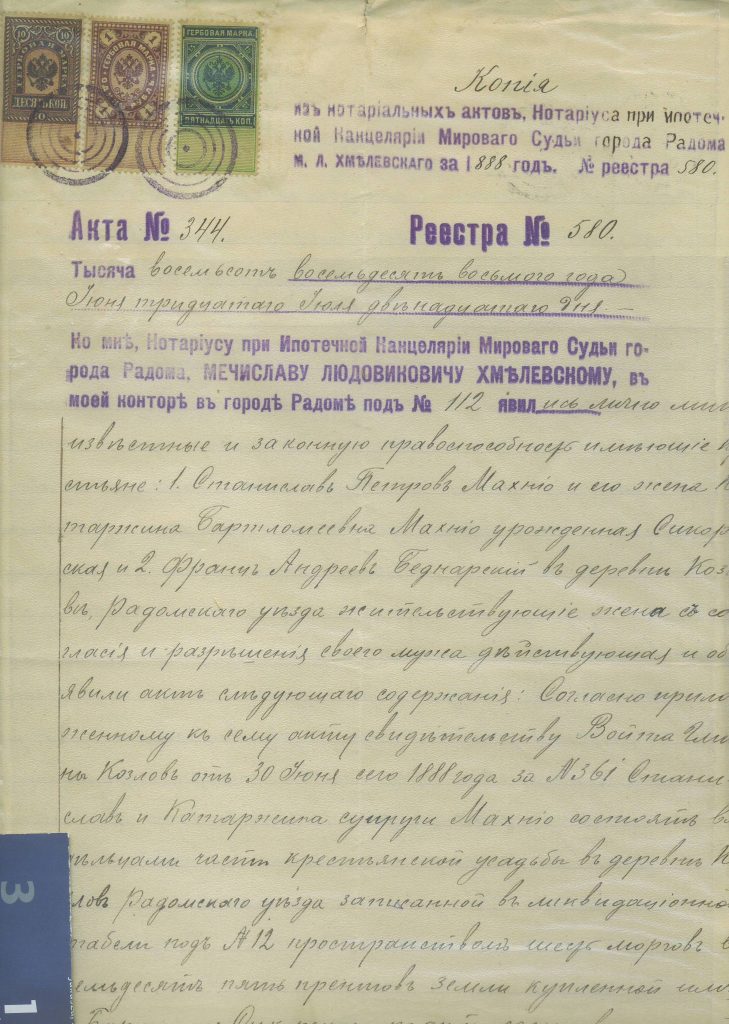 10 10
ГЕРБОВАЯ МАРКА
ДЕСЯТЬ КОП.
1 1
ГЕРБОВАЯ МАРКА
ГЕРБОВАЯ МАРКА.
ПЯТНАДЦАТЬ КОП.
Копія
изъ нотаріальныхъ актовъ, Нотаріуса при ипотеч-
ной Канцеляріи Мироваго Судьи города Радома
М. Л. ХМѢЛЕВСКАГО за 1888 годъ. № реестра 580.
Акта № 344. Реестра № 580.
Тысяча восемьсотъ восемьдесятъ восьмого года
Іюня тридцатаго Іюля двѣнадцатаго дня —
Ко мнѣ, Нотаріусу при Ипотечной Канцеляріи Мироваго Судьи го-
рода Радома, МЕЧИСЛАВУ ЛЮДОВИКОВИЧУ ХМѢЛЕВСКОМУ, въ
моей конторѣ въ городѣ Радомѣ подъ № 112 явились лично мнѣ
извѣстные и законную правоспособность имѣющіе
стьяне: 1. Станиславъ Петровъ Махніо и его жена
таржина Бартломеевна Махніо урожденная Сикор
ская и 2. Францъ Андреевъ Беднарскій въ деревнѣ Коз
вѣ, Радомскаго уѣзда жительствующіе жена съ со
гласія и разрѣшенія своего мужа дѣйствующая и об
явили актъ слѣдующаго содержанія: Согласно прило
женному къ сему акту свидѣтельству Войта Гми
ны Козловъ отъ 30 Іюня сего 1888 года за №361 Стани
славъ и Катаржина супруги Махніо состоятъ в
дѣльцами части крестьянской усадьбы въ деревнѣ К
ловъ Радомскаго уѣзда записанной въ ликвидаціонно
табели подъ №12 пространствомъ шесть морговъ
семьдесятъ пять прентовъ земли купленной ими
3
1